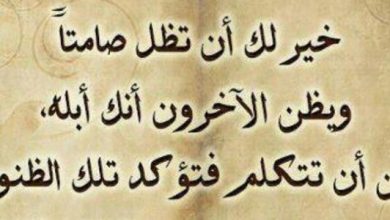 خير لك أن تظل صامتاً
ويظن الآخرون أنك أبله،
ن أن تتكلم فتؤكد تلك الظنو